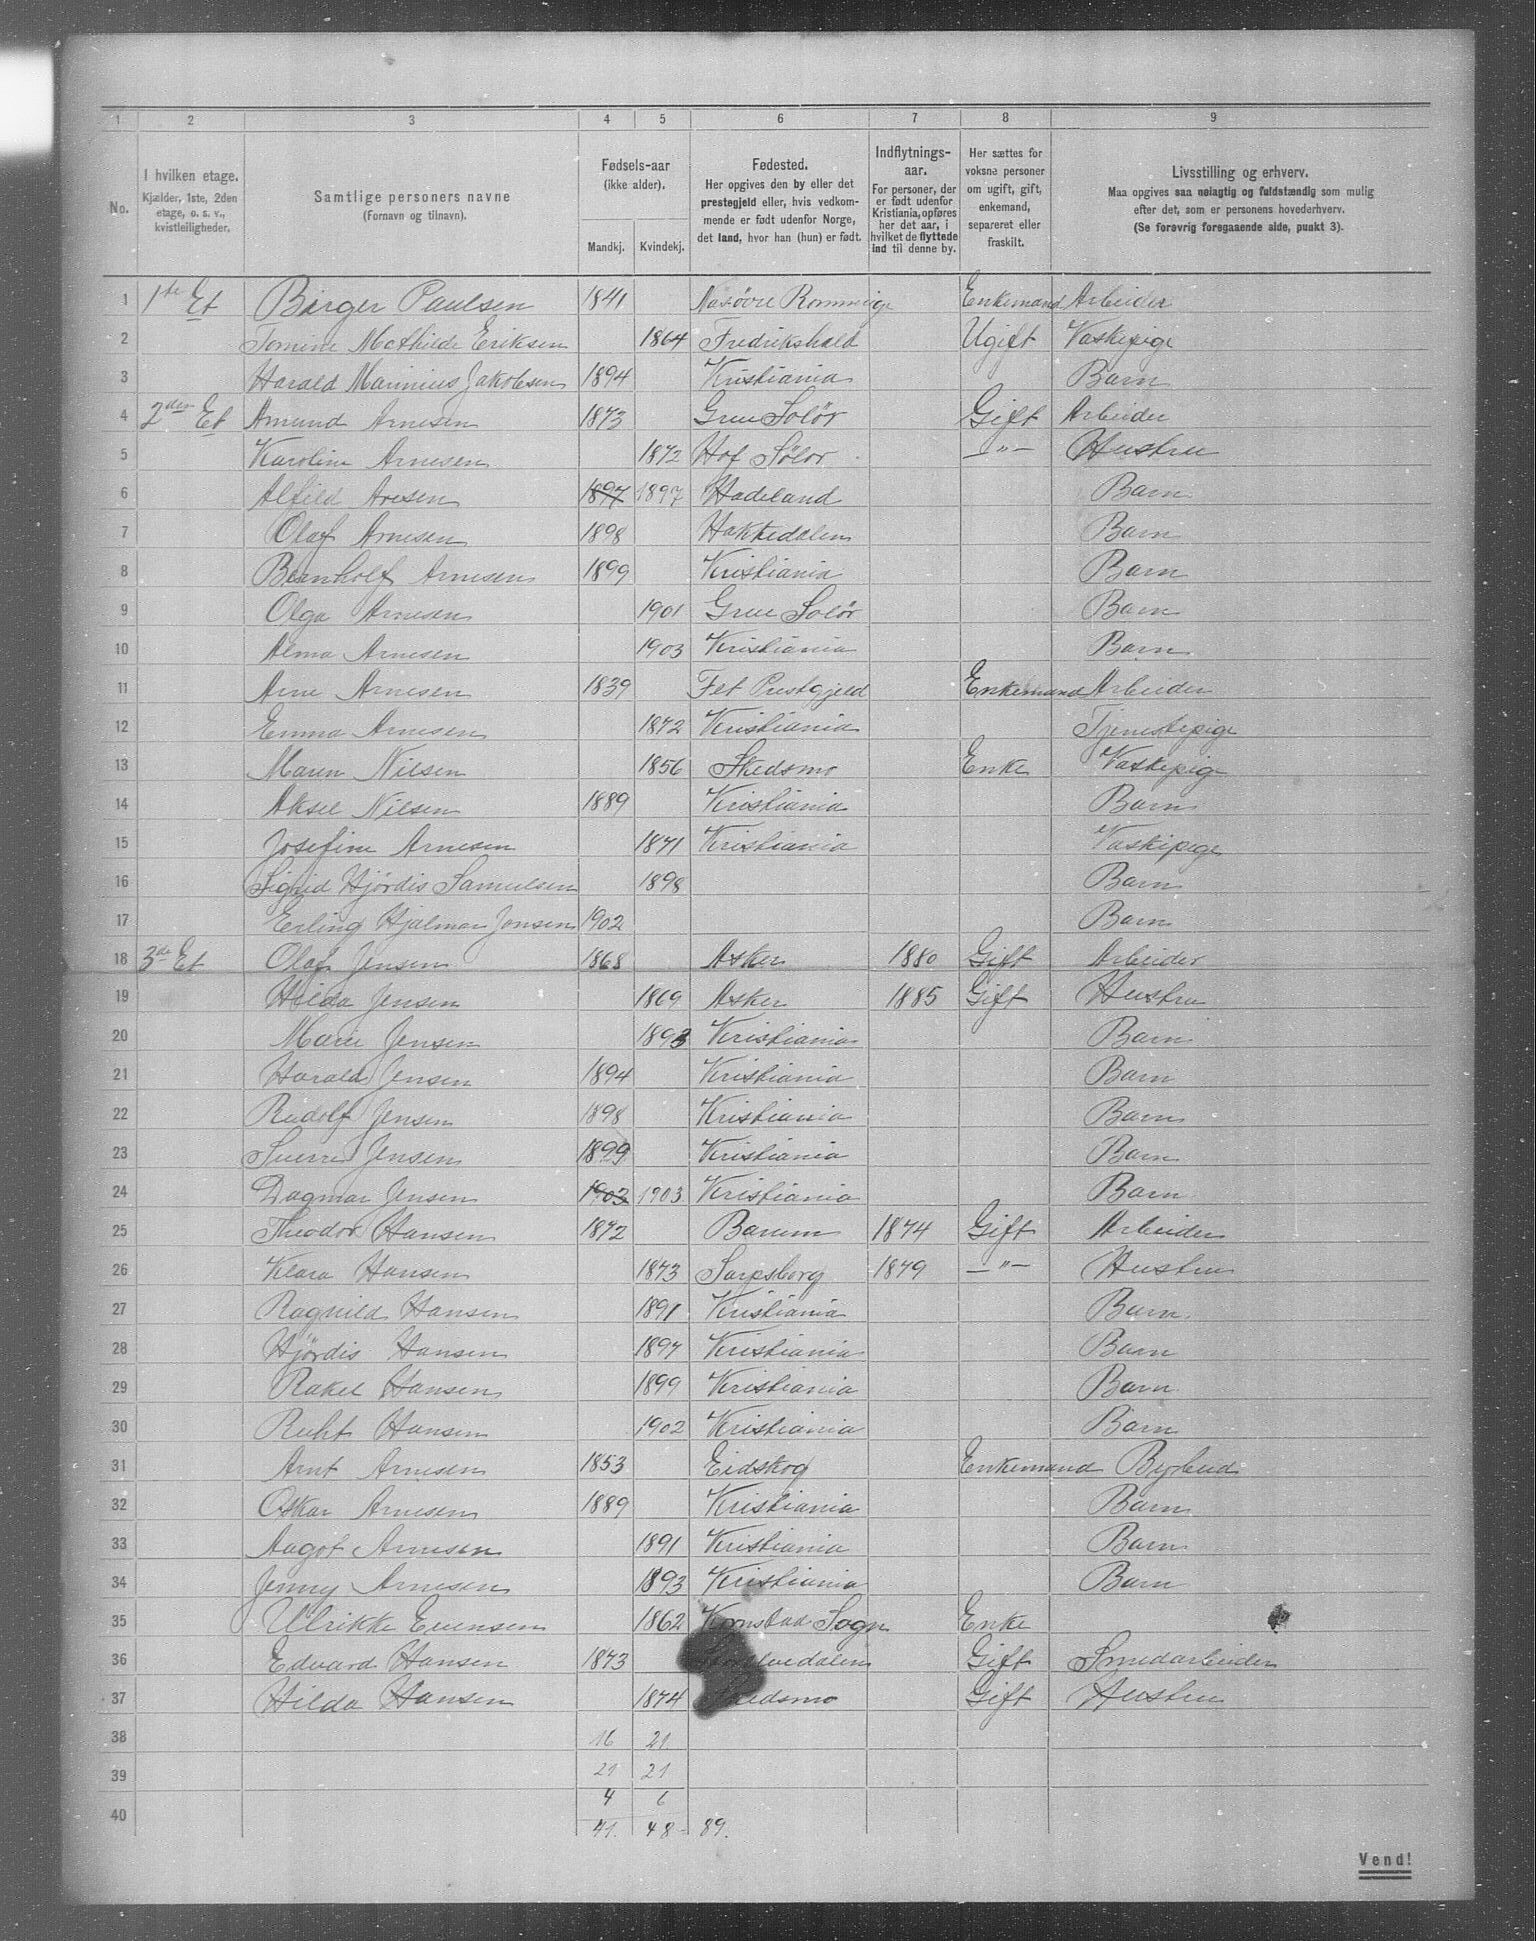 1 2 3 4 5 6 7 8 9
No.
I hvilken etage.
Kjælder, 1ste, 2den
etage, o. s. v.,
kvistleiligheder.
Samtlige personers navne
(Fornavn og tilnavn).
Fødsels-aar
(ikke alder).
Mandkj. Kvindekj.
Fødested.
Her opgives den by eller det
prestegjeld eller, hvis vedkom-
mende er født udenfor Norge,
det land, hvor han (hun) er født.
Indflytnings-
aar.
For personer, der
er født udenfor
Kristiania, opføres
her det aar, i
hvilket de flyttede
ind til denne by.
Her sættes for
voksne personer
om ugift, gift,
enkemand,
separeret eller
fraskilt.
Livsstilling og erhverv.
Maa opgives saa nøiagtig og fuldstændig som mulig
efter det, som er personens hovederhverv.
(Se forøvrig foregaaende side, punkt 3).
1 1ste Et Birger Paulsen 1841 Enkemand Arbeider
2 Tomine Mathilde Eriksen 1864 Fredrikshald Ugift Vaskepige
3 Harald Marinius Jakobsen 1894 Kristiania Barn
4 2den Et Amund Arnesen 1873 Grue Solör Gift Arbeider
5 Karoline Arnesen 1872 Hof Sölör — " — Hustru
6 Alfild Aresen 1897 1897 Hadeland Barn
7 Olaf Arnesen 1898 Hakkedalen Barn
8 Bernholf Arnesen 1899 Kristiania Barn
9 Olga Arnesen 1901 Grue Solör Barn
10 Alma Arnesen 1903 Kristiania Barn
11 Arne Arnesen 1839 Fet Prestgjeld Enkemand Arbeider
12 Emma Arnesen 1872 Kristiania Tjenestepige
13 Maren Nilsen 1856 Skedsmo Enke Vaskepige
14 Aksel Nilsen 1889 Kristiania Barn
15 Josefine Arnesen 1871 Kristiania Vaskepige
16 Sigrid Hjördis Samuelsen 1898 Barn
17 Erling Hjalmar Jonsen 1902 Barn
18 3de Et Olaf Jensen 1868 Asker 1880 Gift Arbeider
19 Hilda Jensen 1869 Asker 1885 Gift Hustru
20 Marie Jensen 1893 Kristiania Barn
21 Harald Jensen 1894 Kristiania Barn
22 Rudolf Jensen 1898 Kristiania Barn
23 Sverre Jensen 1899 Kristiania Barn
24 Dagmar Jensen 1903 1903 Kristiania Barn
25 Theodor Hansen 1872 Barum 1874 Gift Arbeider
26 Klara Hansen 1873 Sarpsborg 1879 — " — Hustru
27 Ragnild Hansen 1891 Kristiania Barn
28 Hjördis Hansen 1897 Kristiania Barn
29 Rakel Hansen 1899 Kristiania Barn
30 Ruht Hansen 1902 Kristiania Barn
31 Arnt Arnesen 1853 Eidskog Enkemand Bybud
32 Oskar Arnesen 1889 Kristiania Barn
33 Aagot Arnesen 1891 Kristiania Barn
34 Jenny Arnesen 1893 Kristiania Barn
35 Ulrikke Evensen 1862 Sogn Enke
36 Edvard Hansen 1873 Gift Smedarbeider
37 Hilda Hansen 1874 Skedsmo Gift Hustru
38 16 21
39 21 21
4 6
40 41. 48 - 89.
Vend!